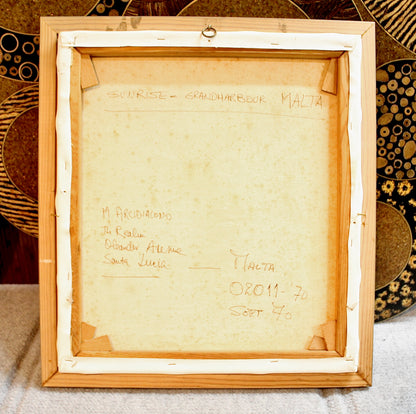 SUNRISE - GRANDHARBOUR MALTA
M ARCIDIACONO
Oleander Avenue
Santa Lucia
MALTA
02011-70
SEPT 70